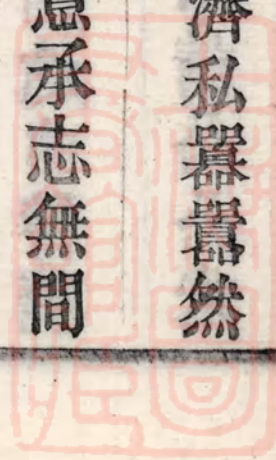 濟私囂囂然
意承志無間